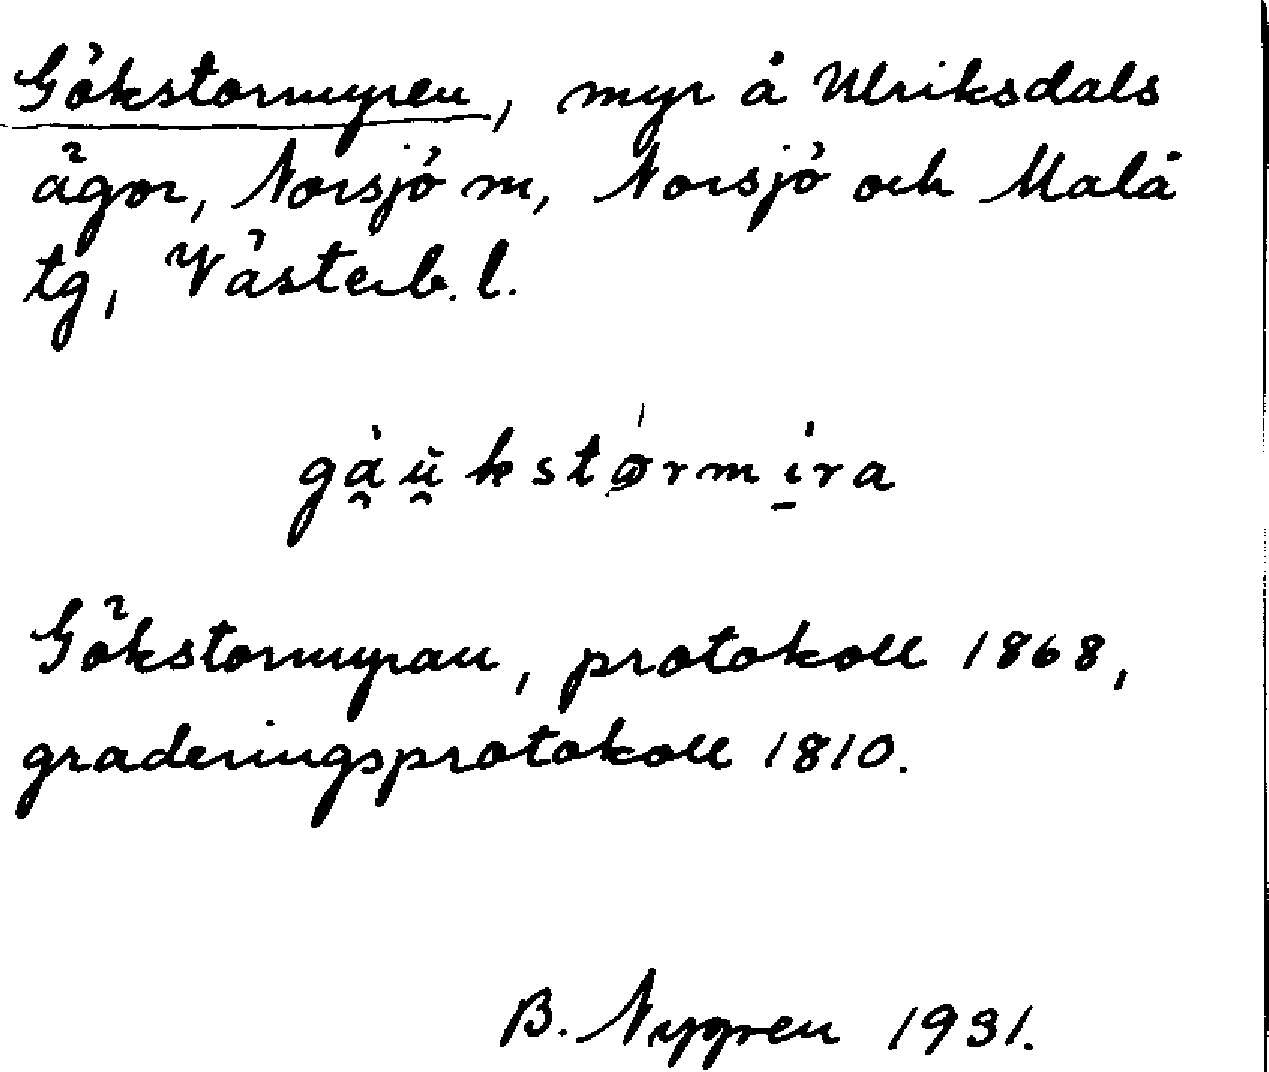 Gökstormyren, myr å Ulriksdals
ägor, Norsjö sn, Norsjö och Malå
tg, Västerb. l.
gàu̯kstǿrmi̱ra
Gökstormyran, protokoll 1868,
graderingsprotokoll 1810.
B. Nygren 1931.